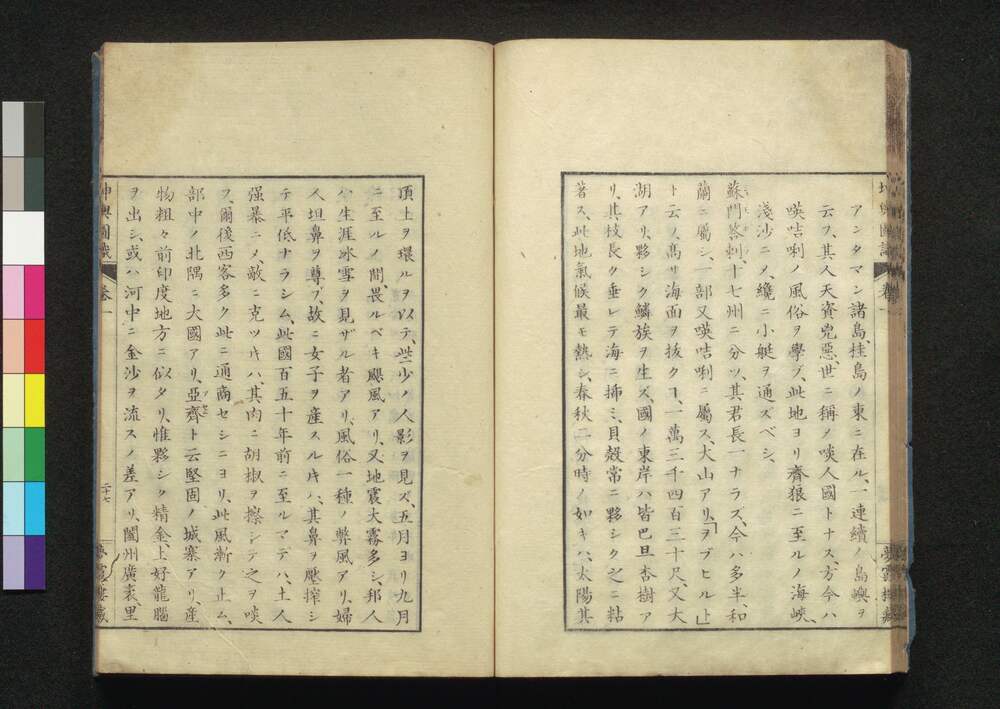 アンタマン諸島、桂島ノ東ニ在ル、一連續ノ島嶼ヲ
云フ、其人天資兇惡、世ニ稱ノ啖人國トナス、方今ハ
暎咭唎ノ風俗ヲ學ブ、此地ヨリ齊狼ニ至ルノ海峽、
淺沙ニメ、纔ニ小艇ヲ通ズベシ、
蘇門答剌、十七州ニ分ツ、其君長一ナラス、今ハ多半、和
蘭ニ屬シ、一部又暎咭唎ニ屬ス、大山アリ、「ヲプヒルト」
ト云ノ、高サ海面ヲ抜クヿ、一萬三千四百三十尺、又大
湖アリ、夥シク鱗族ヲ生ズ、國ノ東岸ハ皆巴旦杏樹ア
リ、其枝長ク垂レテ海ニ挿ミ、貝殼常ニ夥シク之ニ粘
著ス、此地氣候最モ熱シ、春秋二分時ノ如キハ、太陽其
頂上ヲ環ルヲ以テ、些少ノ人影ヲ見ズ、五月ヨリ九月
ニ至ルノ間、畏ルベキ颶風アリ、又地震大霧多シ、邦人
ハ生涯冰雪ヲ見ザル者アリ、風俗一種ノ弊風アリ、婦
人坦鼻ヲ尊ブ、故ニ女子ヲ産スルキハ、其鼻ヲ壓搾シ
テ平低ナラシム、此國百五十年前ニ至ルマテハ、土人
强暴ニメ、敵ニ克ツキハ、其肉ニ胡椒ヲ擦シテ之ヲ啖
フ、爾後西客多ク此ニ通商セシニヨリ、此風漸ク止ム、
部中ノ北隅ニ大國アリ、亞齊ト云堅固ノ城寨アリ、産
物粗々前印度地方ニ似タリ、惟夥シク精金、上好龍腦
ヲ出シ、或ハ河中ニ金沙ヲ流スノ差アリ、闔州廣袤、里
坤輿圖識
卷一
二十七